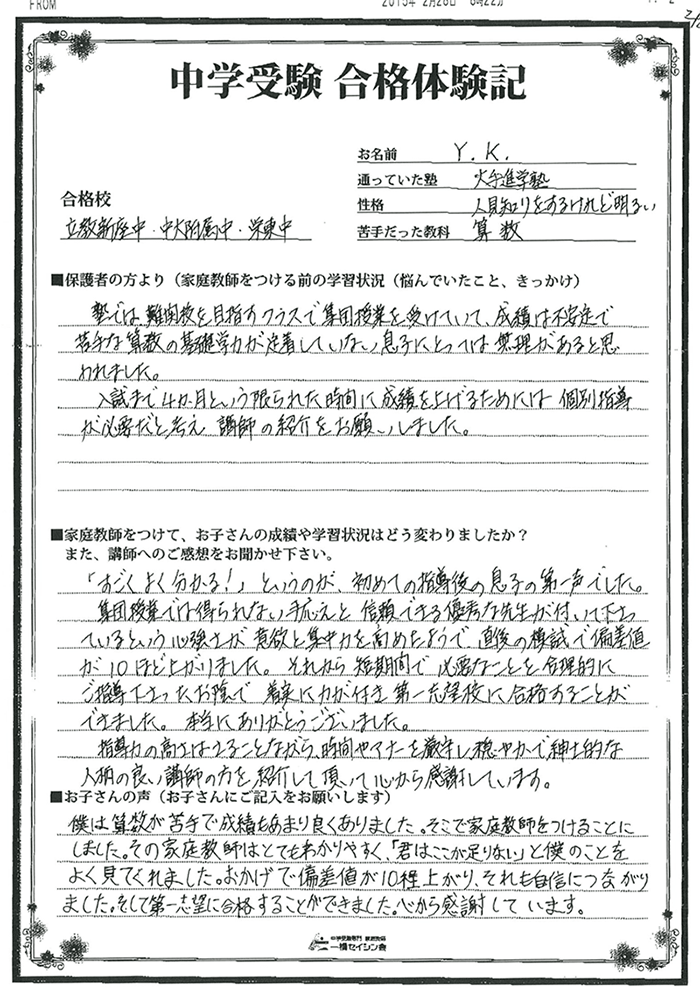 FROM 2015年 2月28日 8時22分 P. 2
2/2
中学受験 合格体験記
お名前 Y.K.
通っていた塾 大手進学塾
性格 人見知りをするけれど明るい
苦手だった教科 算数
合格校
立教新座中・中大附属中・栄東中
■保護者の方より（家庭教師をつける前の学習状況（悩んでいたこと、きっかけ）
塾では、難関校を目指すクラスで集団授業を受けていて、成績は不安定で
苦手な算数の基礎学力が定着していない息子にとっては無理があると思
われました。
入試まで4か月という限られた時間に成績を上げるためには個別指導
が必要だと考え 講師の紹介をお願いしました。
■家庭教師をつけて、お子さんの成績や学習状況はどう変わりましたか？
また、講師へのご感想をお聞かせ下さい。
「すごくよく分かる！」というのが、初めての指導後の息子の第一声でした。
集団授業では得られない手応えと信頼できる優秀な先生が付いて下さっ
ているという心強さが意欲と集中力を高めたようで、直後の模試で偏差値
が10ほど上がりました。それから短期間で必要なことを合理的に
ご指導下さったお陰で 着実に力が付き第一志望校に合格することが
できました。本当にありがとうございました。
指導力の高さはさることながら、時間やマナーを厳守し穏やかで紳士的な
人柄の良い講師の方を紹介して頂いて心から感謝しています。
■お子さんの声（お子さんにご記入をお願いします）
僕は算数が苦手で成績もあまり良くありました。そこで家庭教師をつけることに
しました。その家庭教師はとてもわかりやすく、「君はここが足りない」と僕のことを
よく見てくれました。おかげで偏差値が10程上がり、それも自信につながり
ました。そして第一志望に合格することができました。心から感謝しています。
中学受験専門 家庭教師
一橋セイシン会